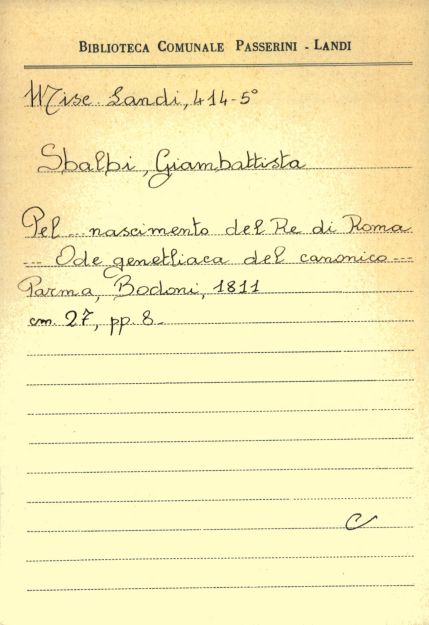 BIBLIOTECA COMUNALE PASSERINI - LANDI
Misc. Landi, 414-5°
Sbalbi, Giambattista
Pel ... nascimento del Re di Roma
--- Ode genetliaca del canonico ---
Parma, Bodoni, 1811
cm. 27, pp. 8.
C